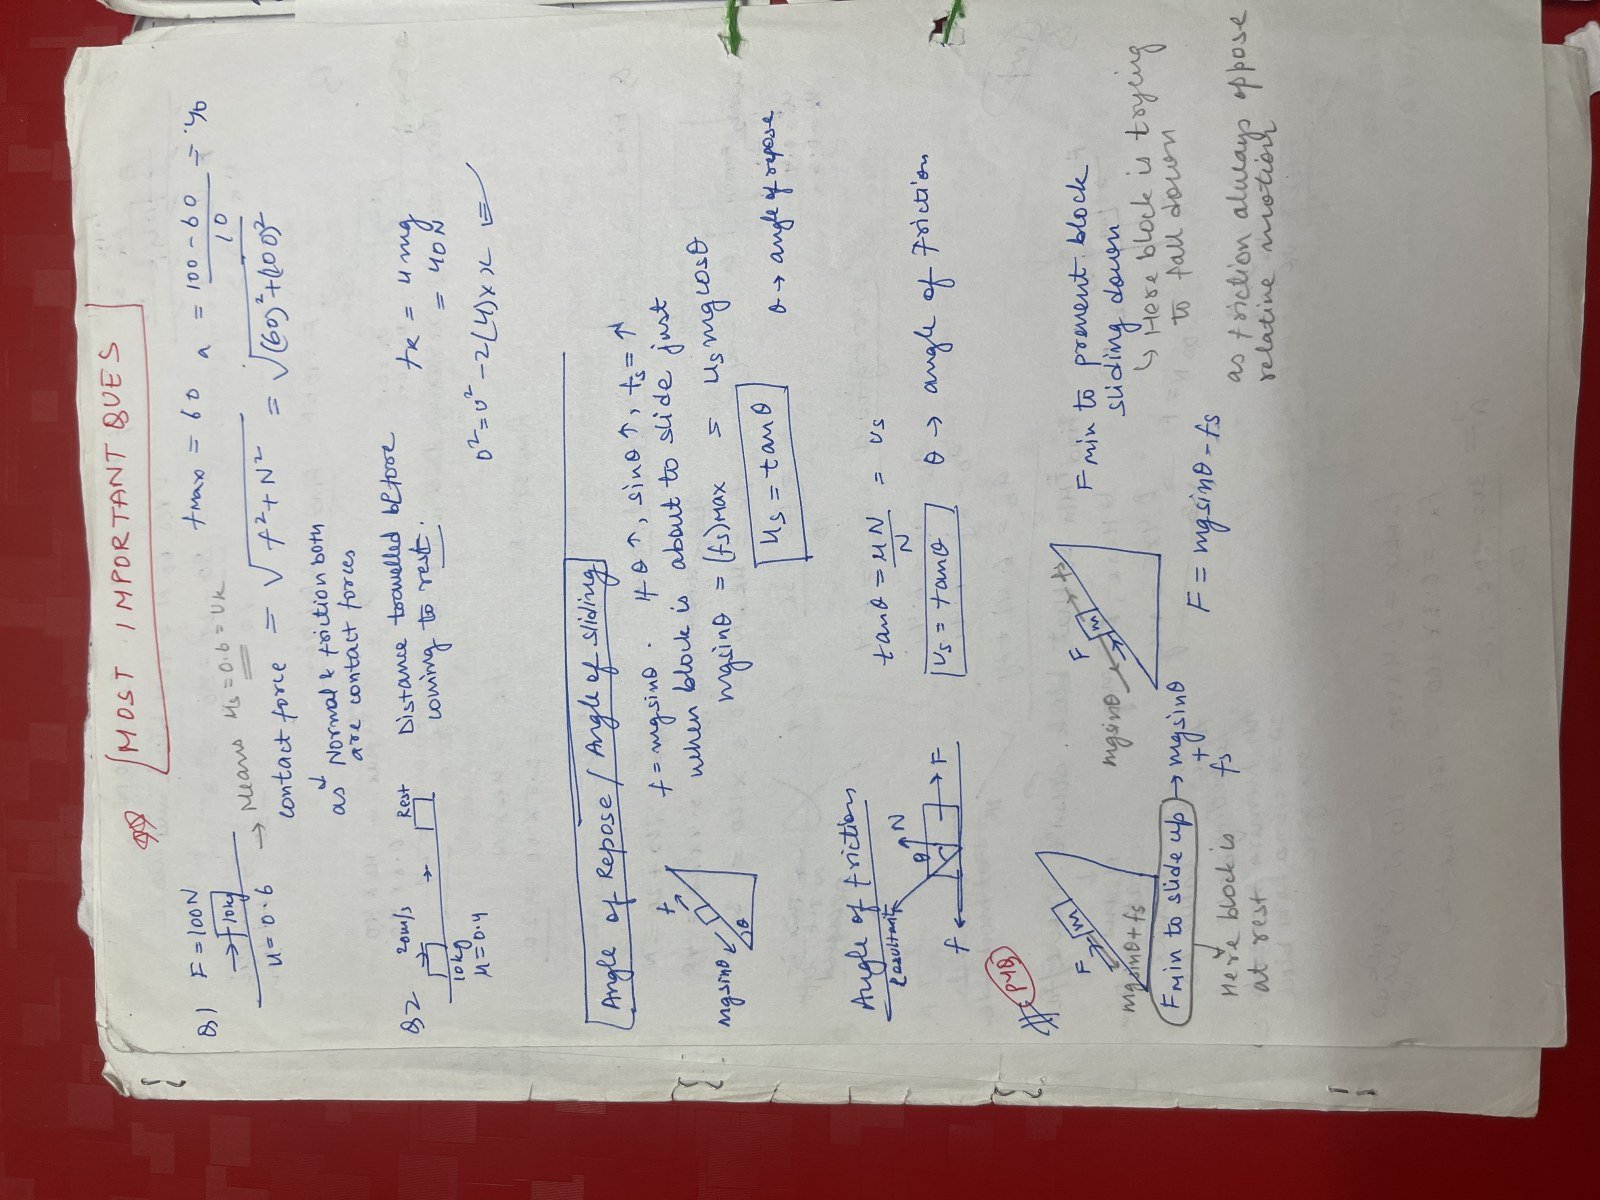 MOST IMPORTANT QUES
Q1 F=100N
10kg
u=0.6
→ Means us=0.6=uk
fmax = 60 a = 100-60 / 10 =
contact force = √f²+N² = √(60)²+(100)²
as Normal & friction both
are contact forces
Q2 20m/s → Rest
10kg
μ=0.4
Distance travelled before
coming to rest.
fk = umg
= 40N
0²=u²-2(4)x x
Angle of Repose / Angle of sliding
f
mgsinθ
θ
f=mgsinθ. If θ↑, sinθ↑, fs=↑
when block is about to slide just
mgsinθ = (fs)max = usmgcosθ
us = tanθ
θ → angle of repose
Angle of friction
N
θ
f F
tanθ = μN / N = us
us = tanθ
θ → angle of friction
PYQ
F
m
mgsinθ+fs
Fmin to slide up → mgsinθ
+
fs
Here block is
at rest
F
m
mgsinθ
F min to prevent block
sliding down
↳ Here block is trying
to fall down
F = mgsinθ-fs
as friction always oppose
relative motion